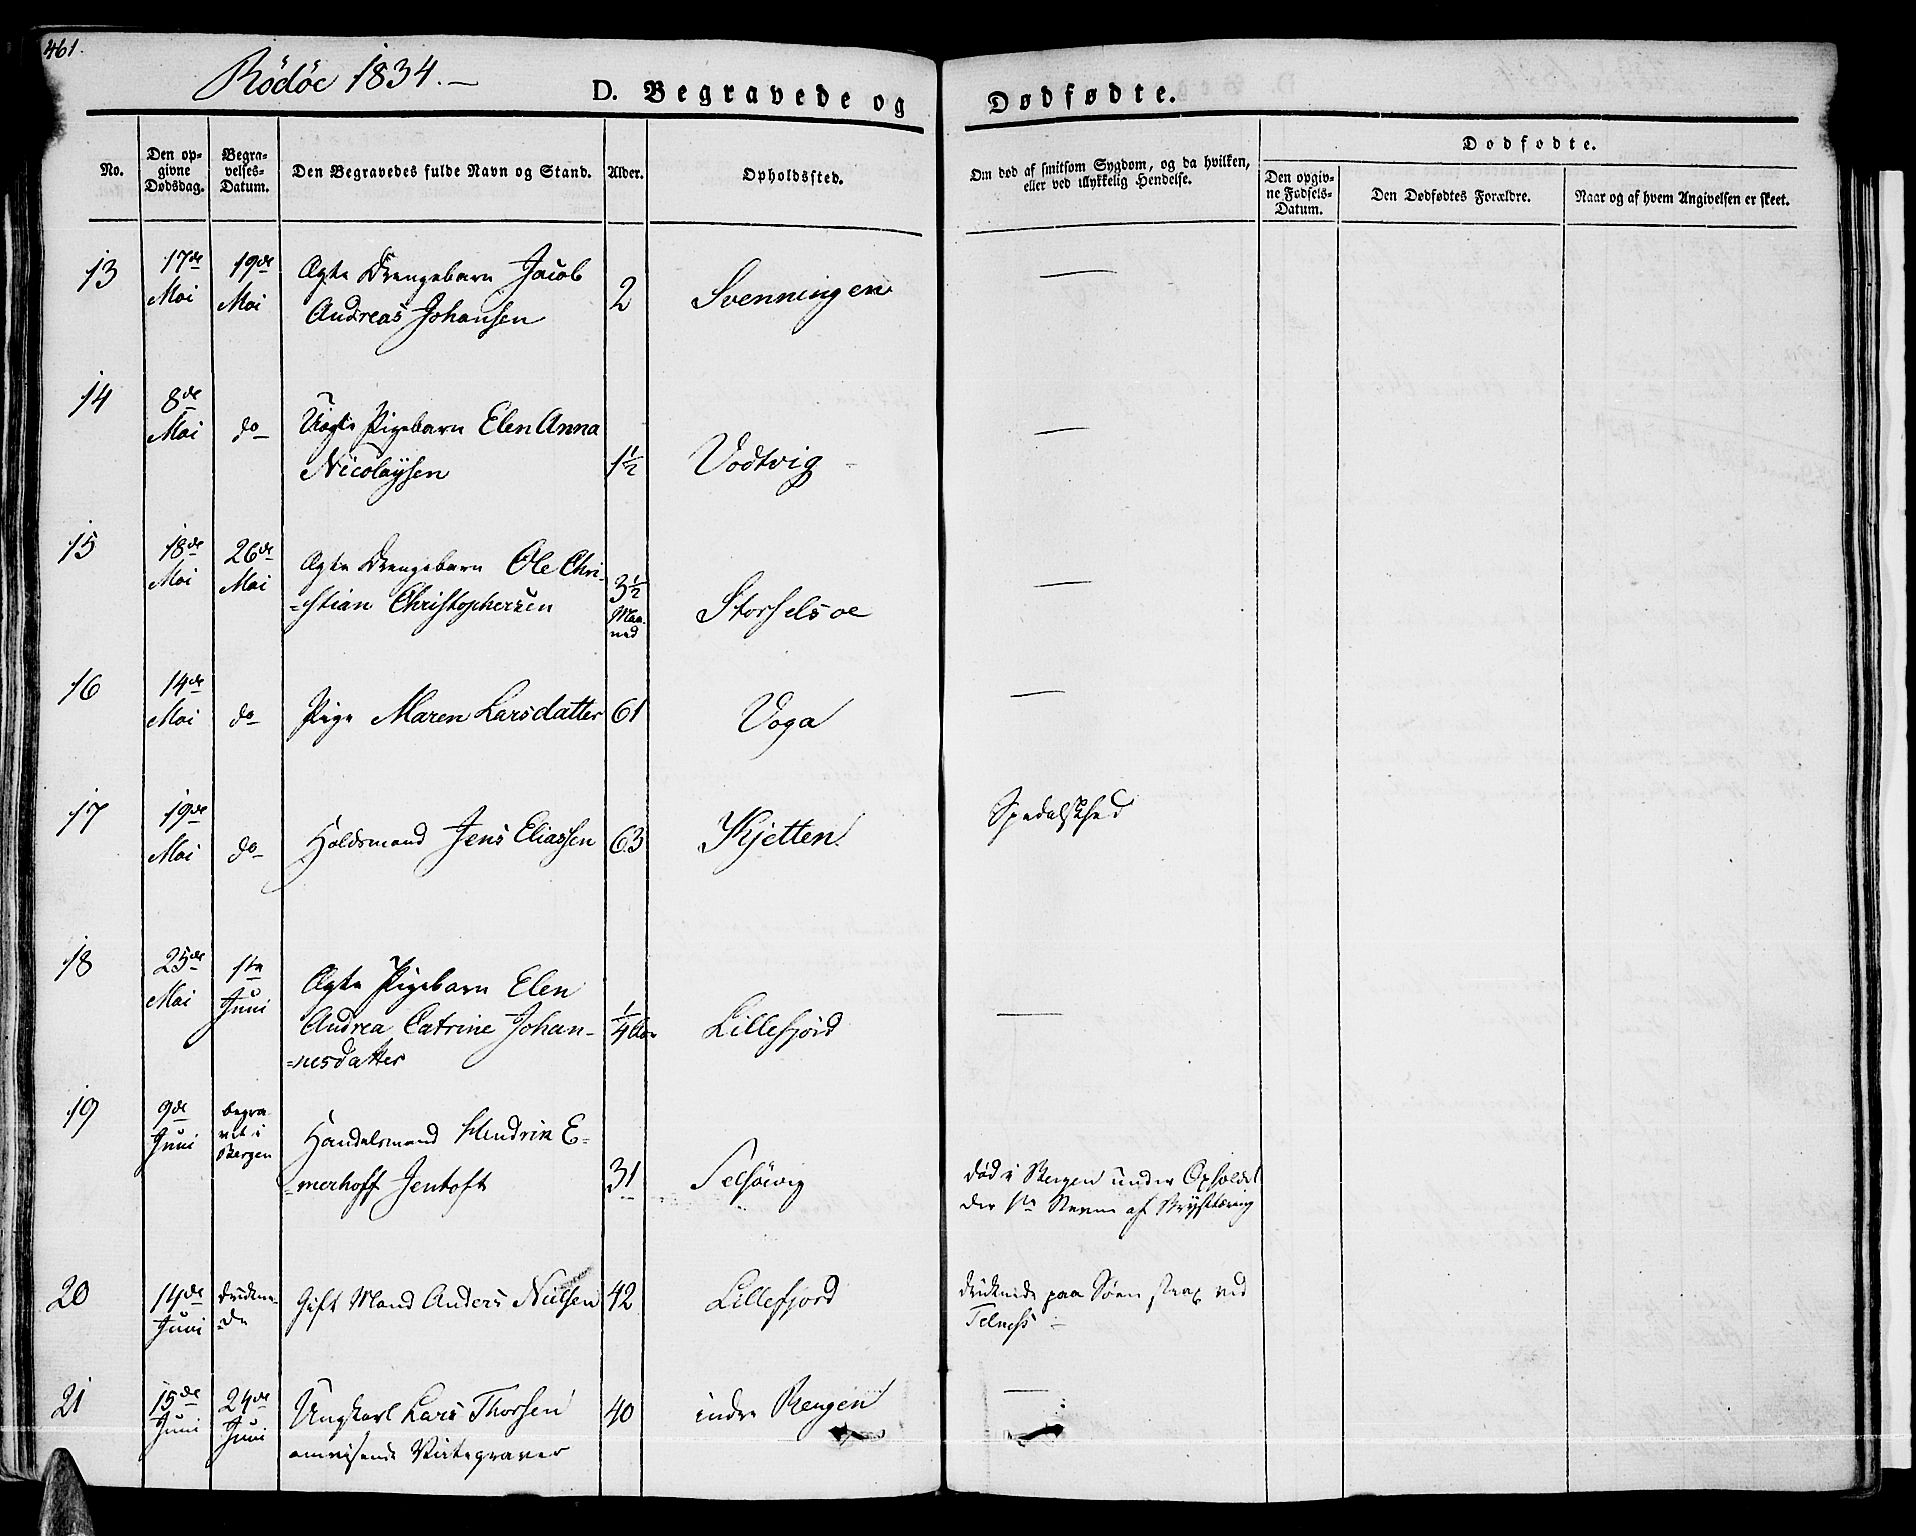 461.
Rödöe 1834.—
D. Begravede og Dødfødte.
No.
Den op-
givne
Dødsdag.
Begra-
velses-
Datum.
Den Begravedes fulde Navn og Stand.
Alder.
Opholdsted.
Om død af smitsom Sygdom, og da hvilken,
eller ved ulykkelig Hendelse.
Dødfødte.
Den opgiv-
ne Fødsels-
Datum.
Den Dødfødtes Forældre.
Naar og af hvem Angivelsen er skeet.
13
17de
Mai
19de
Mai
Ægte Drengebarn Jacob
Andreas Johansen
2
Svenningen
—
14
8de
Mai
do
Uægte Pigebarn Elen Anna
Nicolaysen
1½
Vodtvig
—
15
18de
Mai
26de
Mai
Ægte Drengebarn Ole Chri-
=stian Christophersen
3½
Maa-
ned
Storselsoe
—
16
14de
Mai
do
Pige Maren Larsdatter
61
Voga
—
17
19de
Mai
do
Holdsmand Jens Eliassen
63
Kjetten
Spedalskhed
18
25de
Mai
1ste
Juni
Ægte Pigebarn Elen
Andrea Catrine Johan-
=nesdatter
¼ Aar
Lillefjord
—
19
9de
Juni
begra-
vet i
Bergen
Handelsmand Hendrik E-
=merhoff Jentoft
31
Selsövig
død i Bergen under Opholdet
der 1ste Stevne af Brysttæring
20
14de
Juni
druknе-
de
Gift Mand Anders Nielsen
42
Lillefjord
druknede paa Søen strax ved
Telness
21
15de
Juni
24de
Juni
Ungkarl Lars Thorsen
omreisende Virtegraver
40
indre Rengen
—